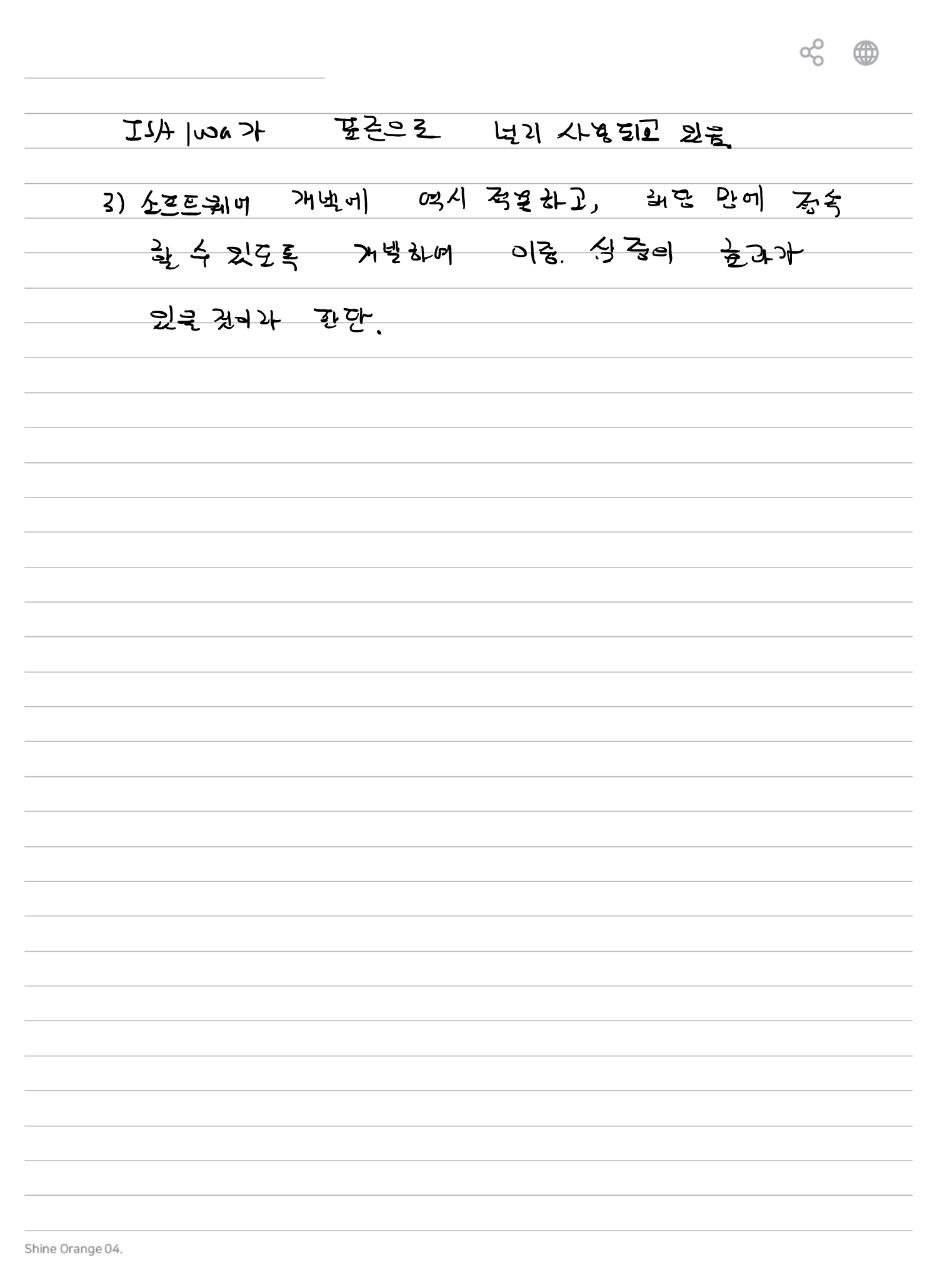 ISA/Wa가 표준으로 널리 사용되고 있음.
3) 소프트웨어 개발에 역시 적절하고, 해당 만에 접속
할 수 있도록 개발하여 이중. 삼중의 효과가
있을 것이라 판단.
Shine Orange 04.